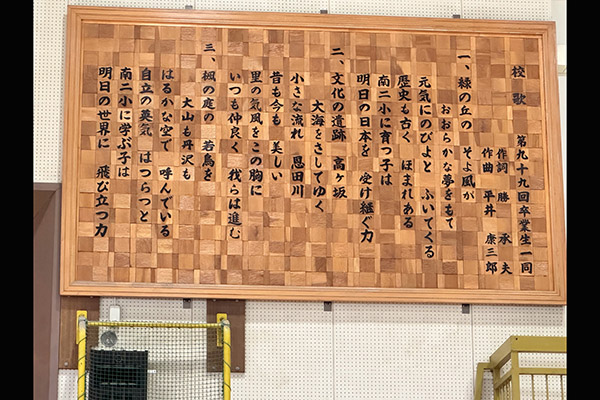 校歌
第九十九回卒業生一同
作詞 勝承夫
作曲 平井康三郎
一、緑の丘の そよ風が
おおらかな夢をもて
元気にのびよと ふいてくる
歴史も古く ほまれある
南二小に育つ子は
明日の日本を 受け継ぐ力
二、文化の遺跡 高ヶ坂
大海をさしてゆく
小さな流れ 恩田川
昔も今も 美しい
里の気風をこの胸に
いつも仲良く 我らは進む
三、楓の庭の 若鳥を
大山も丹沢も
はるかな空で 呼んでいる
自立の英気 はつらつと
南二小に学ぶ子は
明日の世界に 飛び立つ力